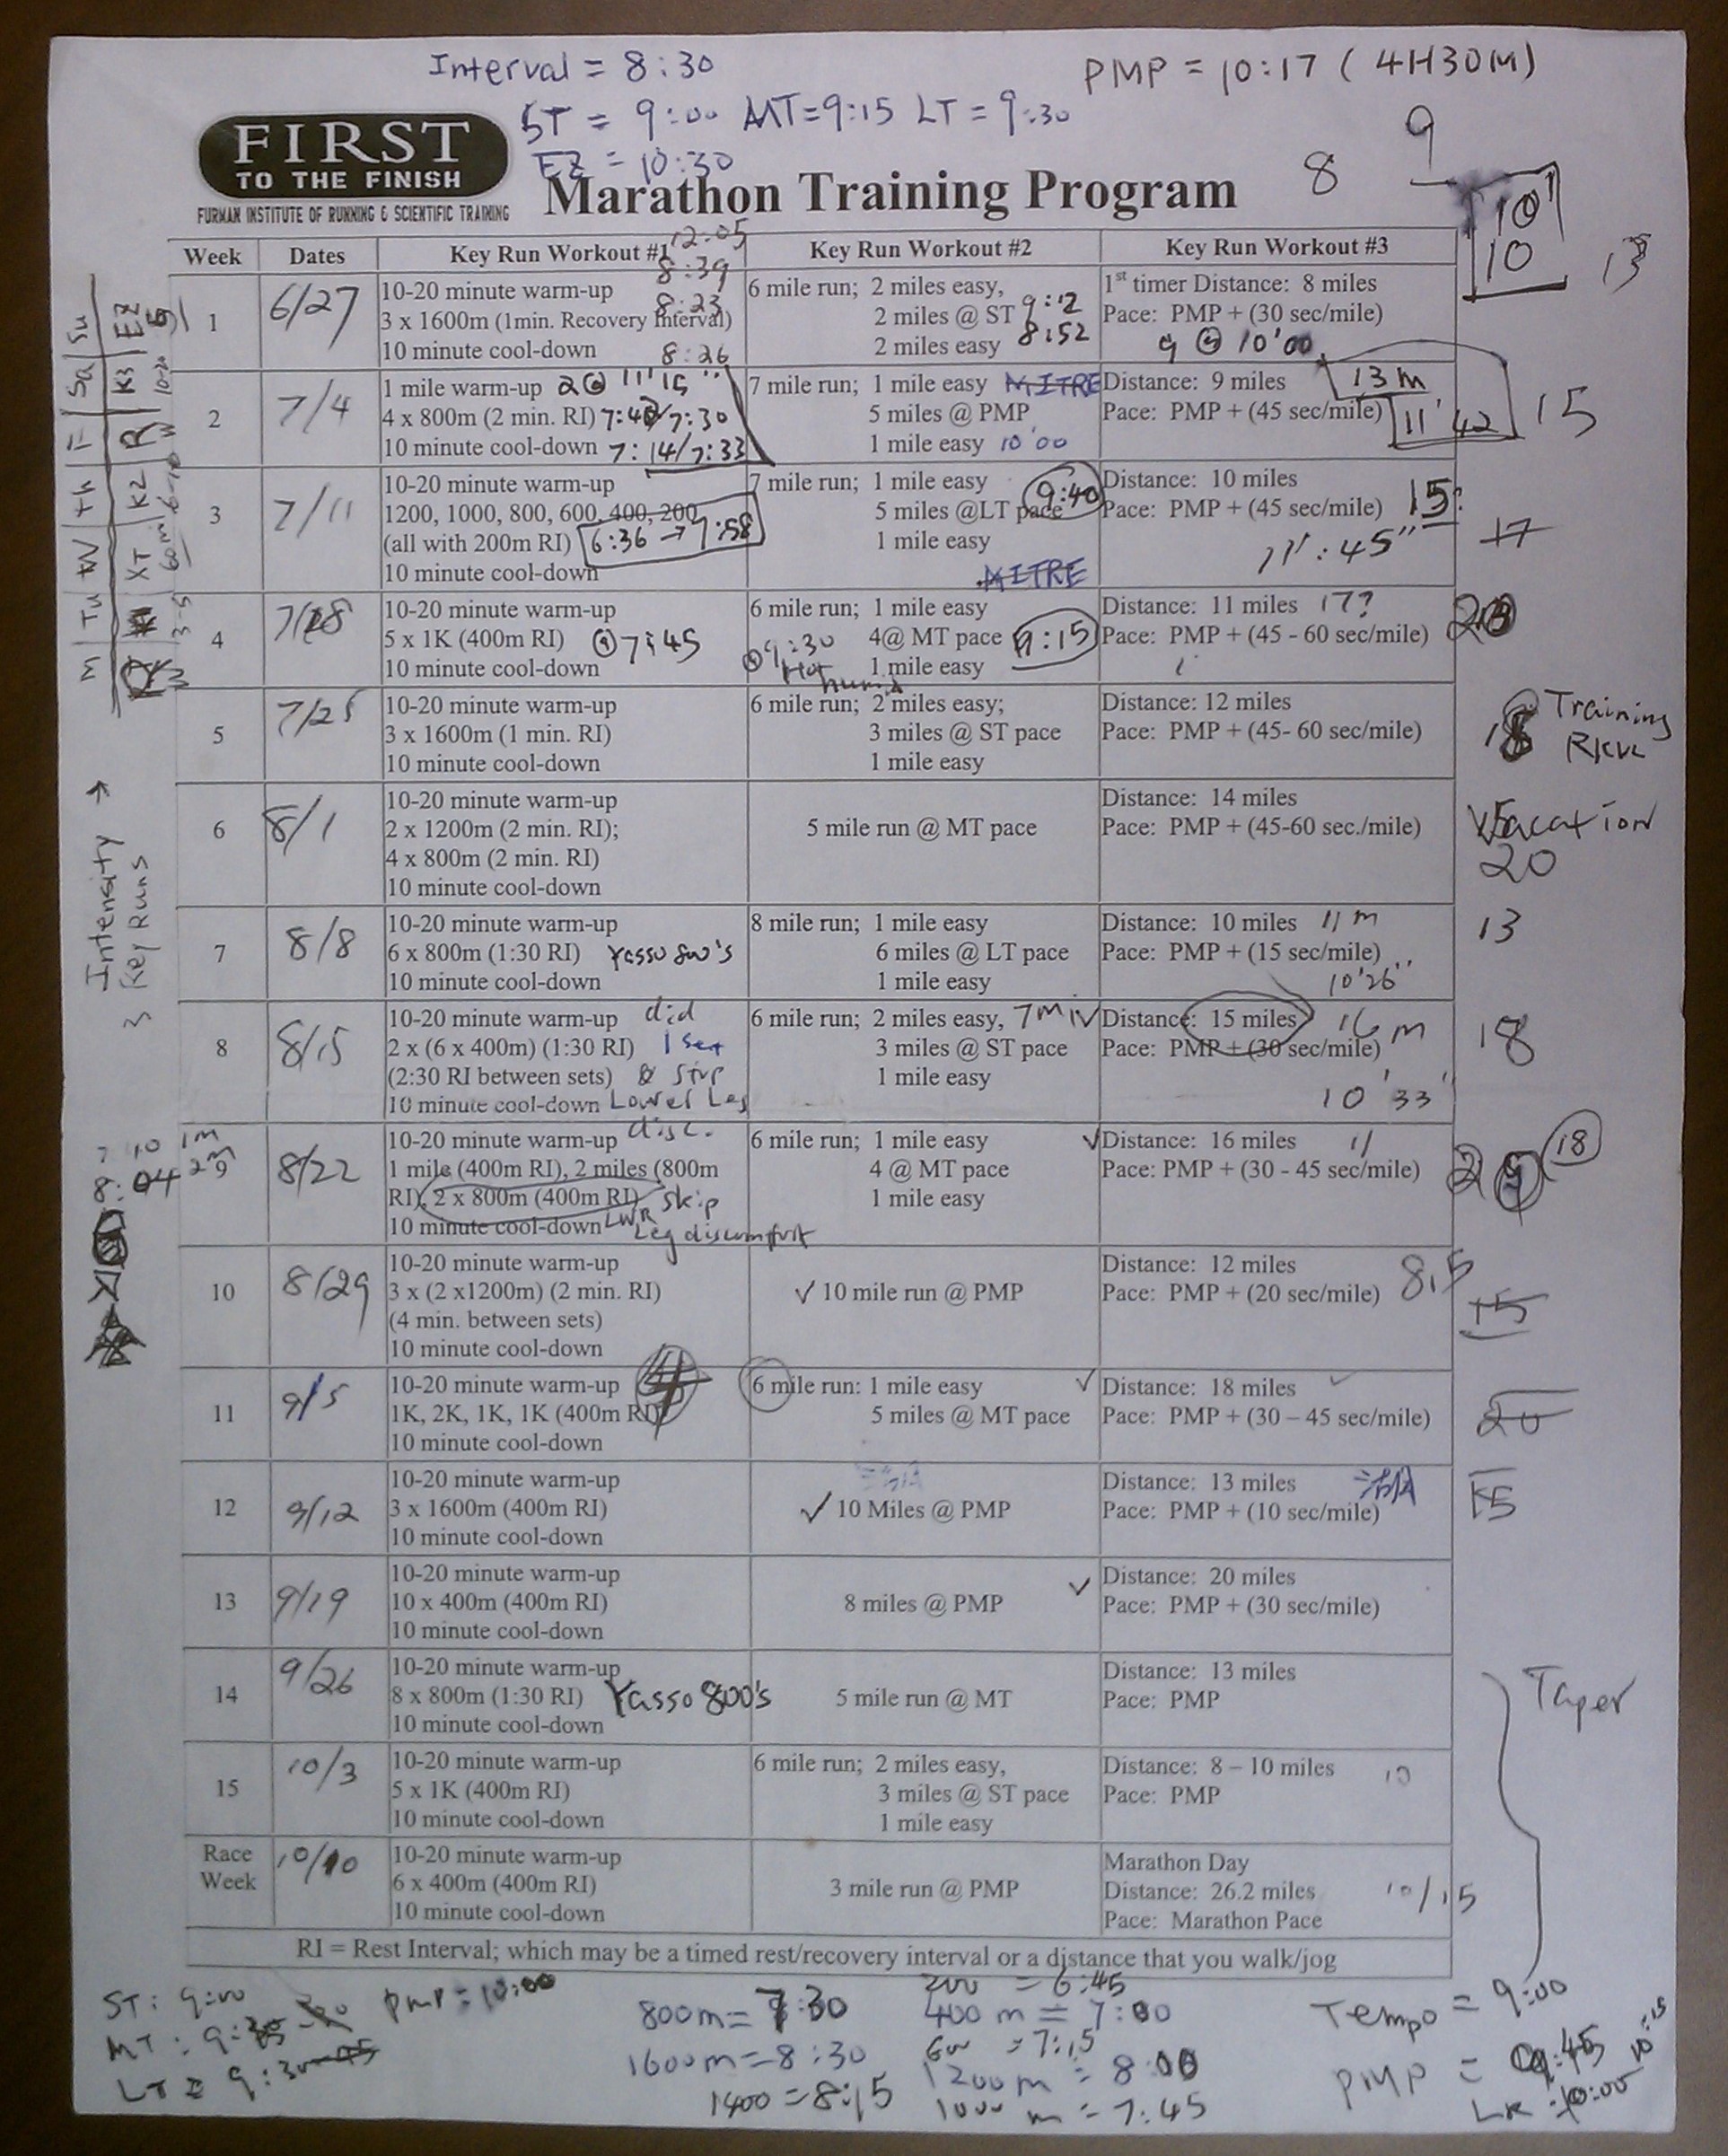 Interval = 8:30
PMP = 10:17 ( 4H30M )
ST = 9:00 MT=9:15 LT = 9:30
EZ = 10:30
FIRST
TO THE FINISH
FURMAN INSTITUTE OF RUNNING & SCIENTIFIC TRAINING
Marathon Training Program
8
9
10
10
13
Week Dates Key Run Workout #1 Key Run Workout #2 Key Run Workout #3
12:05
8:39
8:23
8:26
1 6/27
10-20 minute warm-up
3 x 1600m (1min. Recovery Interval)
10 minute cool-down
6 mile run; 2 miles easy,
2 miles @ ST 9:12
2 miles easy 8:52
1st timer Distance: 8 miles
Pace: PMP + (30 sec/mile)
9 @ 10'00
2 7/4
1 mile warm-up 2@ 11'15"
4 x 800m (2 min. RI) 7:42/7:30
10 minute cool-down 7:14/7:33
7 mile run; 1 mile easy MITRE
5 miles @ PMP
1 mile easy 10'00
Distance: 9 miles 13 m
Pace: PMP + (45 sec/mile) 11'42
15
3 7/11
10-20 minute warm-up
1200, 1000, 800, 600, 400, 200
(all with 200m RI) 6:36 → 7:58
10 minute cool-down
7 mile run; 1 mile easy
5 miles @LT pace 9:40
1 mile easy
MITRE
Distance: 10 miles
Pace: PMP + (45 sec/mile) 15
11':45"
17
4 7/18
10-20 minute warm-up
5 x 1K (400m RI) @7:45
10 minute cool-down
6 mile run; 1 mile easy
4@ MT pace 9:15
1 mile easy
@9:30
Hot
humid
Distance: 11 miles 17?
Pace: PMP + (45 - 60 sec/mile)
5 7/25
10-20 minute warm-up
3 x 1600m (1 min. RI)
10 minute cool-down
6 mile run; 2 miles easy;
3 miles @ ST pace
1 mile easy
Distance: 12 miles
Pace: PMP + (45- 60 sec/mile)
Training
6 8/1
10-20 minute warm-up
2 x 1200m (2 min. RI);
4 x 800m (2 min. RI)
10 minute cool-down
5 mile run @ MT pace
Distance: 14 miles
Pace: PMP + (45-60 sec./mile)
Vacation
20
7 8/8
10-20 minute warm-up
6 x 800m (1:30 RI) Yasso 800's
10 minute cool-down
8 mile run; 1 mile easy
6 miles @ LT pace
1 mile easy
Distance: 10 miles 11 m
Pace: PMP + (15 sec/mile)
10'26"
13
8 8/15
10-20 minute warm-up did
2 x (6 x 400m) (1:30 RI) 1 set
(2:30 RI between sets) & stop
10 minute cool-down Lower Leg
disc.
6 mile run; 2 miles easy, 7m
3 miles @ ST pace
1 mile easy
Distance: 15 miles 16 m
Pace: PMP + (30 sec/mile)
10'33"
18
9 8/22
10-20 minute warm-up
1 mile (400m RI), 2 miles (800m
RI), 2 x 800m (400m RI) skip
10 minute cool-down LWR
Leg discomfort
6 mile run; 1 mile easy
4 @ MT pace
1 mile easy
Distance: 16 miles 11
Pace: PMP + (30 - 45 sec/mile)
18
10 8/29
10-20 minute warm-up
3 x (2 x1200m) (2 min. RI)
(4 min. between sets)
10 minute cool-down
✓ 10 mile run @ PMP
Distance: 12 miles
Pace: PMP + (20 sec/mile) 8.5
15
11 9/5
10-20 minute warm-up 4
1K, 2K, 1K, 1K (400m RI)
10 minute cool-down
6 mile run: 1 mile easy ✓
5 miles @ MT pace
Distance: 18 miles ✓
Pace: PMP + (30 – 45 sec/mile)
20
12 9/12
10-20 minute warm-up
3 x 1600m (400m RI)
10 minute cool-down
✓ 10 Miles @ PMP
Distance: 13 miles
Pace: PMP + (10 sec/mile)
15
13 9/19
10-20 minute warm-up
10 x 400m (400m RI)
10 minute cool-down
8 miles @ PMP ✓
Distance: 20 miles
Pace: PMP + (30 sec/mile)
14 9/26
10-20 minute warm-up
8 x 800m (1:30 RI) Yasso 800's
10 minute cool-down
5 mile run @ MT
Distance: 13 miles
Pace: PMP
Taper
15 10/3
10-20 minute warm-up
5 x 1K (400m RI)
10 minute cool-down
6 mile run; 2 miles easy,
3 miles @ ST pace
1 mile easy
Distance: 8 – 10 miles 10
Pace: PMP
Race
Week 10/10
10-20 minute warm-up
6 x 400m (400m RI)
10 minute cool-down
3 mile run @ PMP
Marathon Day
Distance: 26.2 miles 10/15
Pace: Marathon Pace
RI = Rest Interval; which may be a timed rest/recovery interval or a distance that you walk/jog
M Tu W th F Sa Su
XT K2 R K3 EZ
Intensity →
3 Key Runs
ST: 9:00 PMP = 10:00
800m = 7:30
1600m = 8:30
1400 = 8:15
200 = 6:45
400 m = 7:00
600 = 7:15
1200 m = 8:00
1000 m = 7:45
Tempo = 9:00
PMP = 9:45 10:15
LR : 10:00